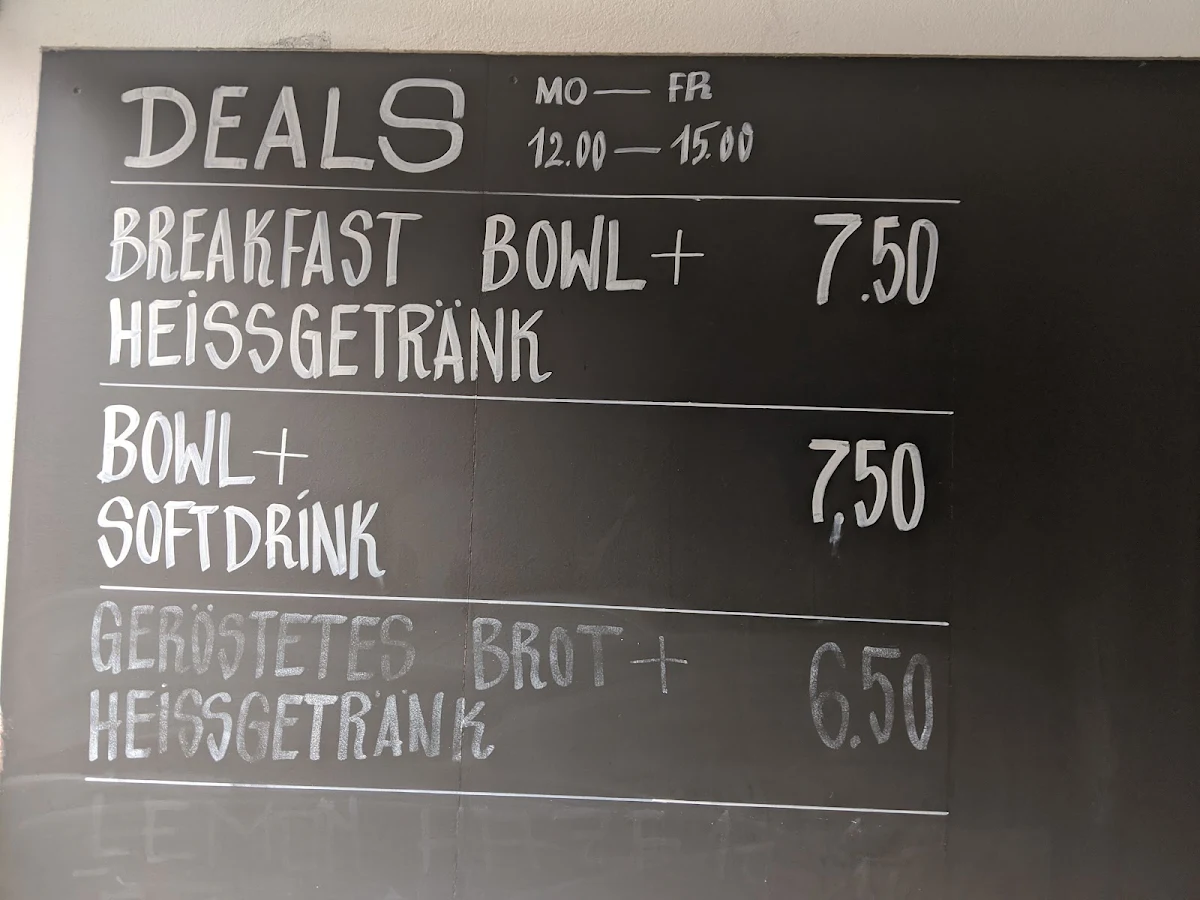 DEALS
MO — FR
12.00 — 15.00
BREAKFAST BOWL + 7.50
HEISSGETRÄNK
BOWL + 7,50
SOFTDRINK
GERÖSTETES BROT + 6.50
HEISSGETRÄNK
LEMON